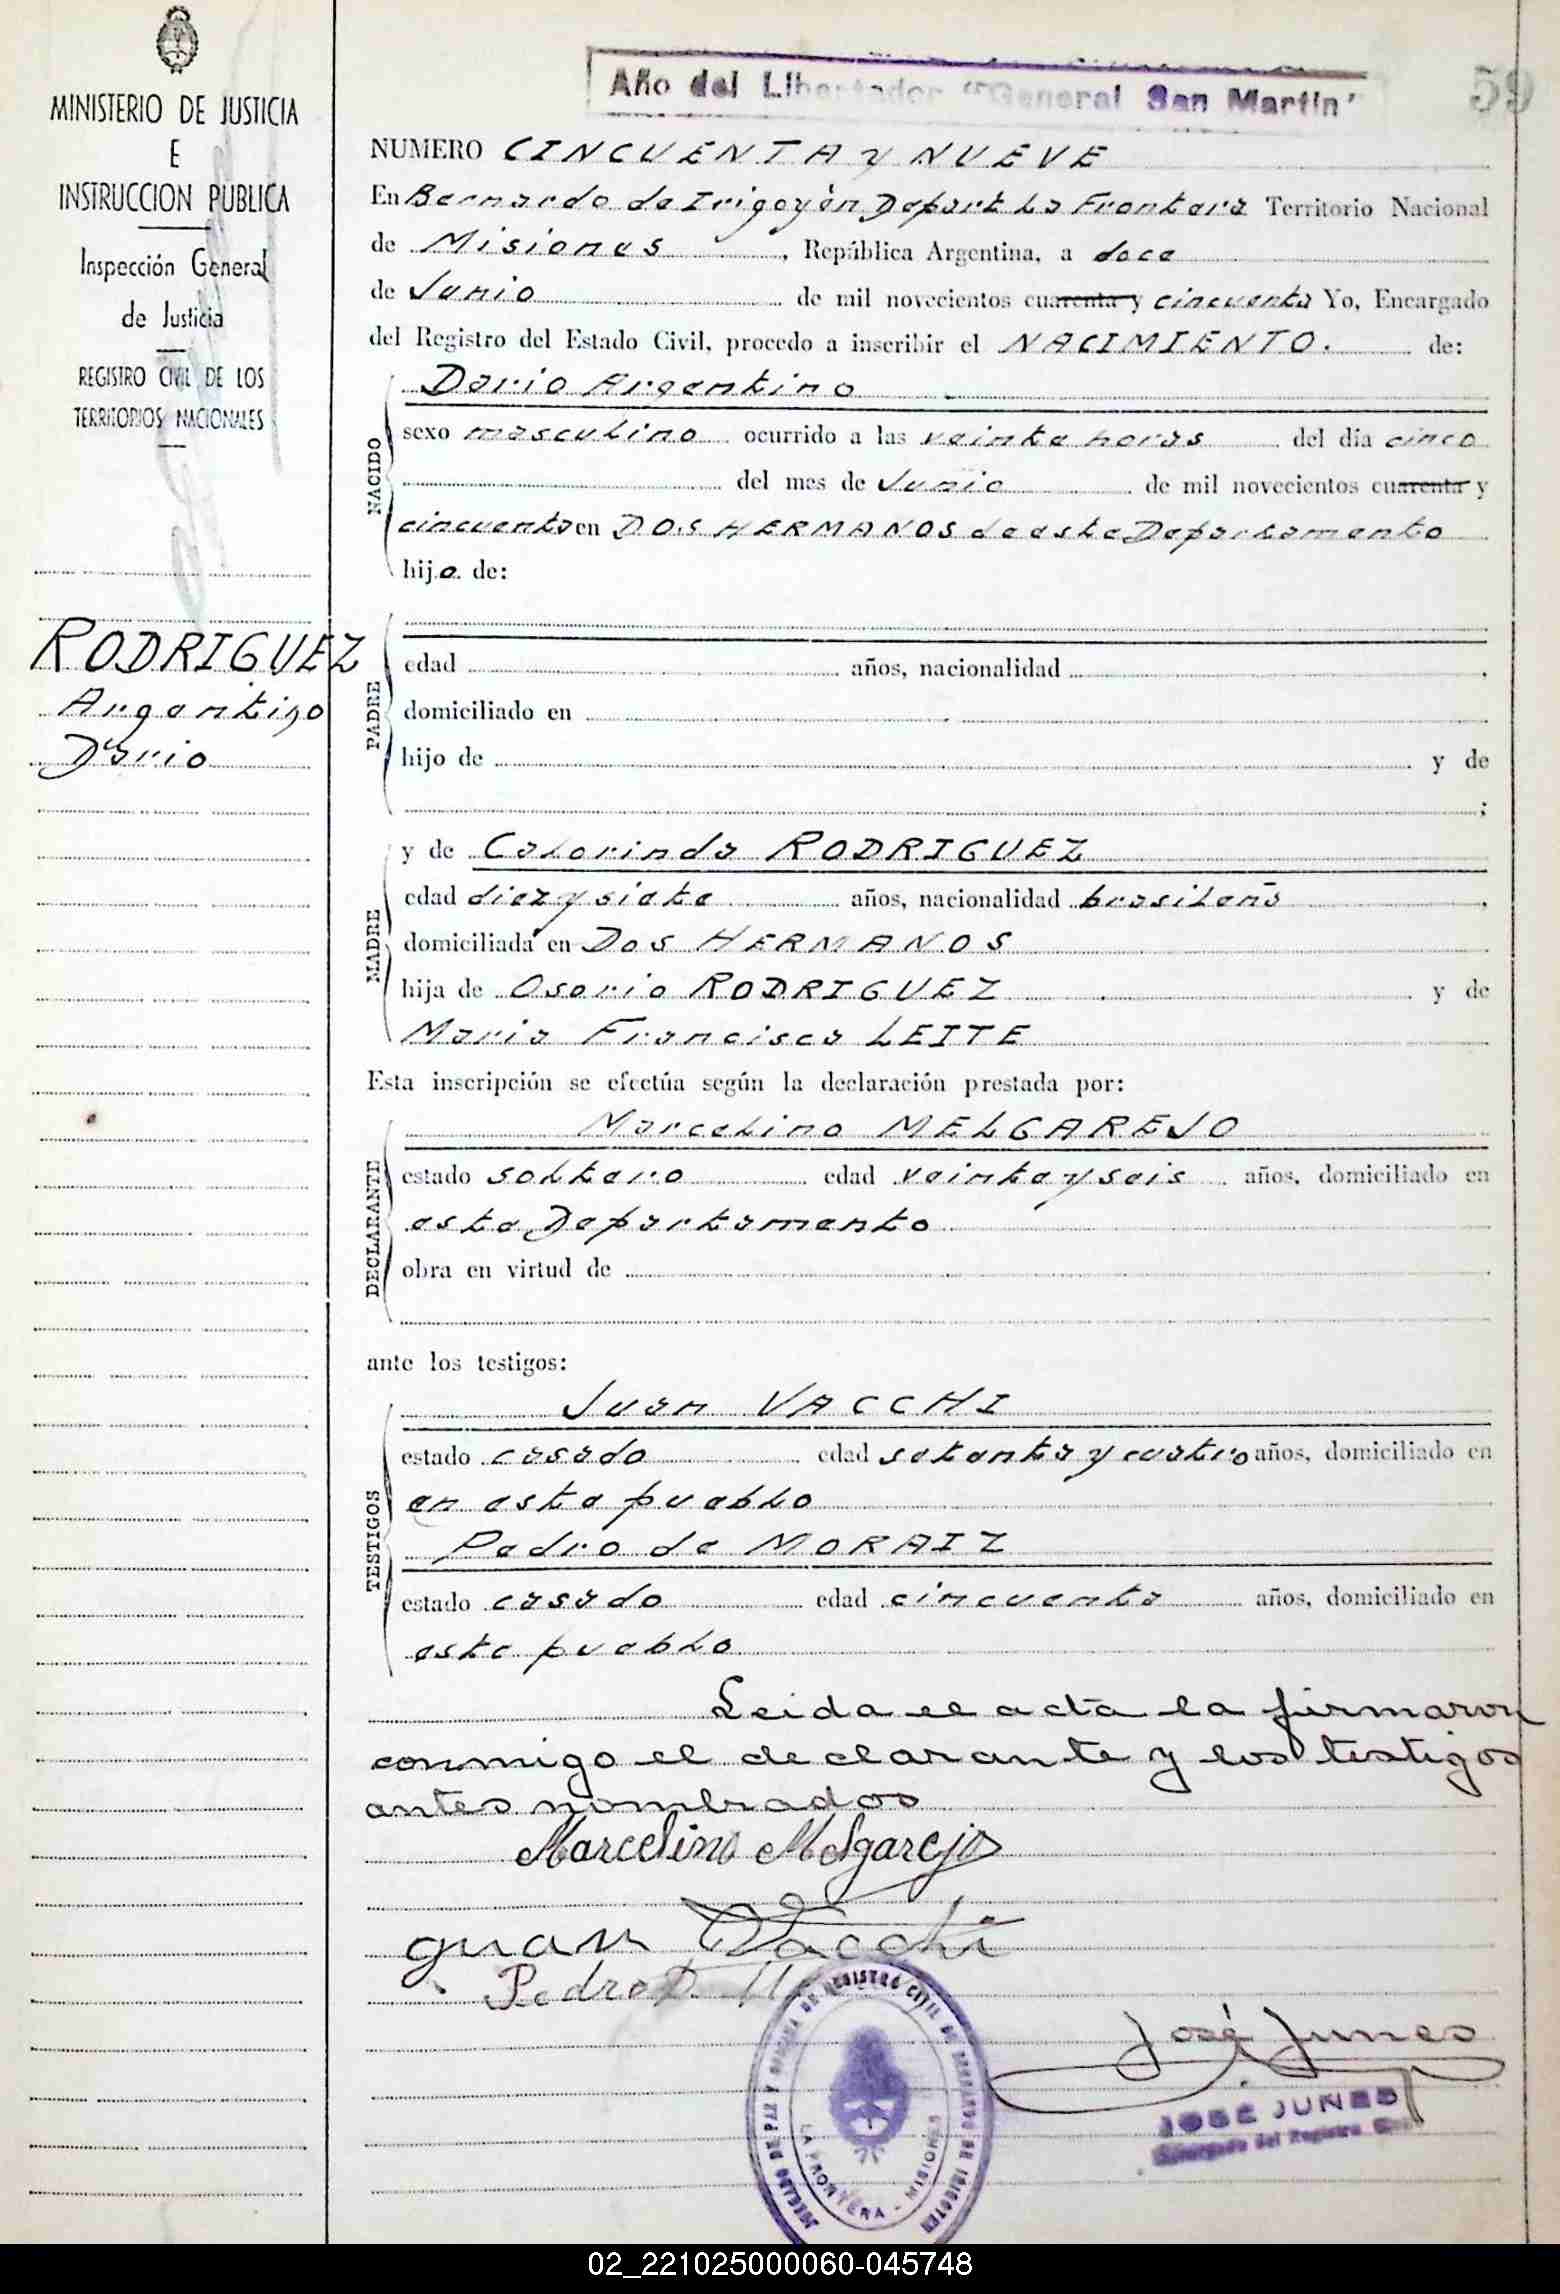 MINISTERIO DE JUSTICIA
E
INSTRUCCION PUBLICA
Inspección General
de Justicia
REGISTRO CIVIL DE LOS
TERRITORIOS NACIONALES
RODRIGUEZ
Argentino
Dario
Año del Libertador "General San Martín"
59
NUMERO CINCUENTA y NUEVE
En Bernardo de Irigoyen Depart La Frontera Territorio Nacional
de Misiones, República Argentina, a doce
de Junio de mil novecientos cuarenta y cincuenta Yo, Encargado
del Registro del Estado Civil, procedo a inscribir el NACIMIENTO. de:
Dario Argentino
NACIDO
sexo masculino ocurrido a las veinte horas del día cinco
del mes de Junio de mil novecientos cuarenta y
cincuenta en DOS HERMANOS de este Departamento
hijo de:
PADRE
edad años, nacionalidad ,
domiciliado en
hijo de y de
;
MADRE
y de Calorinda RODRIGUEZ
edad diez y siete años, nacionalidad brasileña ,
domiciliada en DOS HERMANOS
hija de Osorio RODRIGUEZ y de
Maria Francisca LEITE
Esta inscripción se efectúa según la declaración prestada por:
DECLARANTE
Marcelino MELGAREJO
estado soltero edad veinte y seis años, domiciliado en
este Departamento
obra en virtud de
ante los testigos:
TESTIGOS
Juan VACCHI
estado casado edad setenta y cuatro años, domiciliado en
en este pueblo
Pedro de MORAIZ
estado casado edad cincuenta años, domiciliado en
este pueblo
Leida el acta la firmaron
conmigo el declarante y los testigos
antes nombrados
Marcelino Melgarejo
Juan Vacchi
Pedro D.
José Junes
JOSE JUNES
Encargado del Registro Civil
JUZGADO DE PAZ Y OFICINA DE REGISTRO CIVIL DE BERNARDO DE IRIGOYEN
LA FRONTERA - MISIONES
02_221025000060-045748